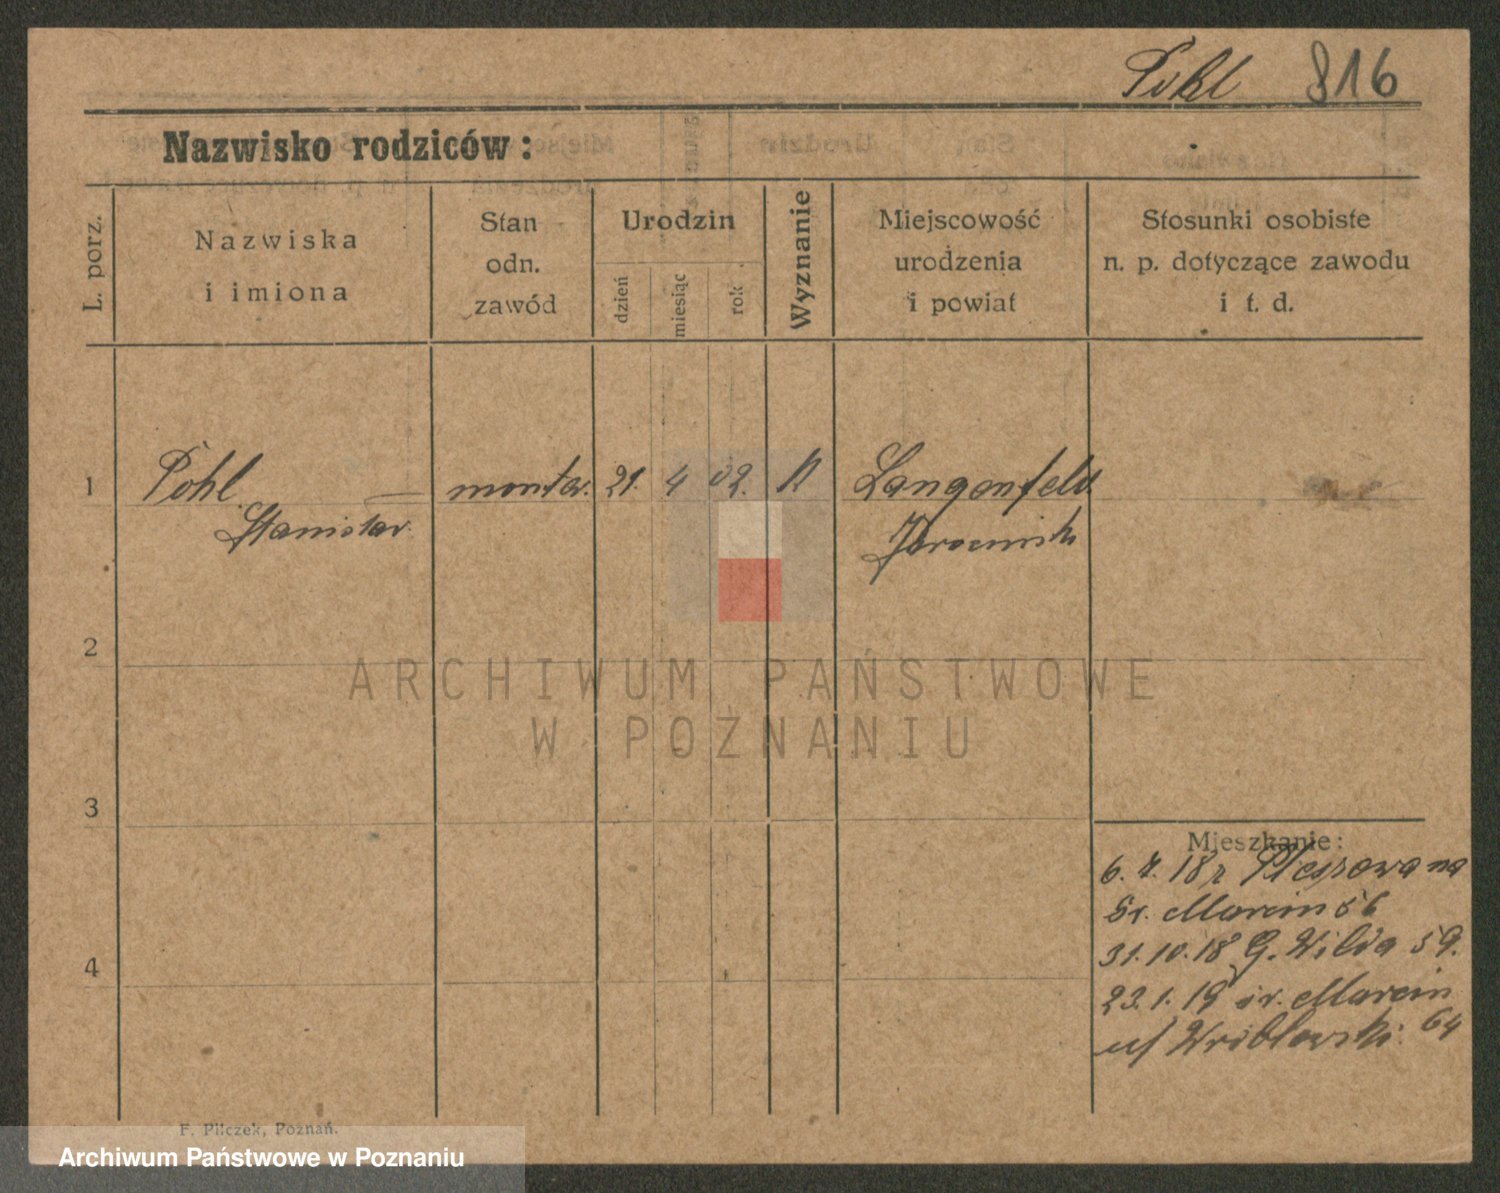 Pohl 816
Nazwisko rodziców:
L. porz.
Nazwiska
i imiona
Stan
odn.
zawód
Urodzin
dzień
miesiąc
rok
Wyznanie
Miejscowość
urodzenia
i powiat
Stosunki osobiste
n. p. dotyczące zawodu
i t. d.
1 Pohl monter. 21. 4 02. K Langenfeld
Stanislav. Jarocinski
2
ARCHIWUM PAŃSTWOWE
W POZNANIU
3
Mieszkanie:
6. 7. 18 z Pleszewa na
Św. Marcin 56
31. 10. 18 G. Wilda 59.
23. 1. 19 św. Marcin
64
4
F. Pilczek, Poznań.
Archiwum Państwowe w Poznaniu